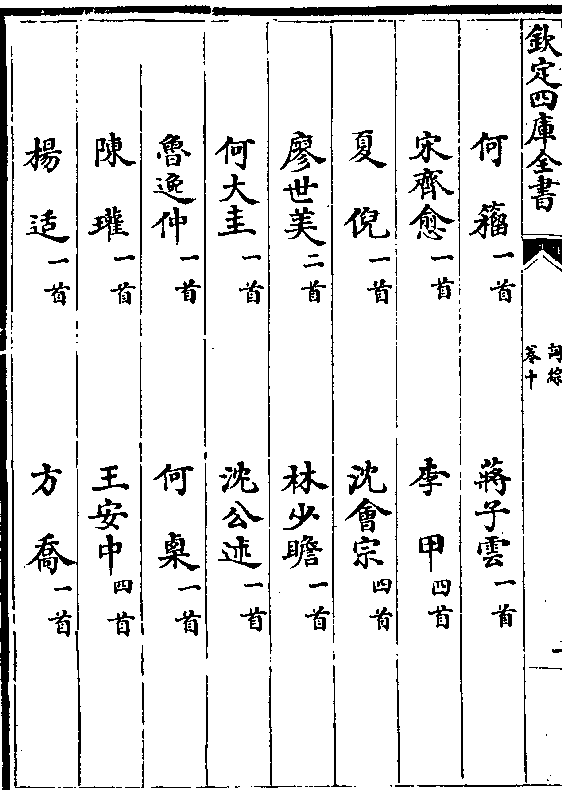 欽定四庫全書
詞綜
卷十
何籀一首 蔣子雲一首
宋齊愈一首 李甲四首
夏倪一首 沈會宗四首
廖世美二首 林少瞻一首
何大圭一首 沈公述一首
魯逸仲一首 何㮚一首
陳瓘一首 王安中四首
楊适一首 方喬一首